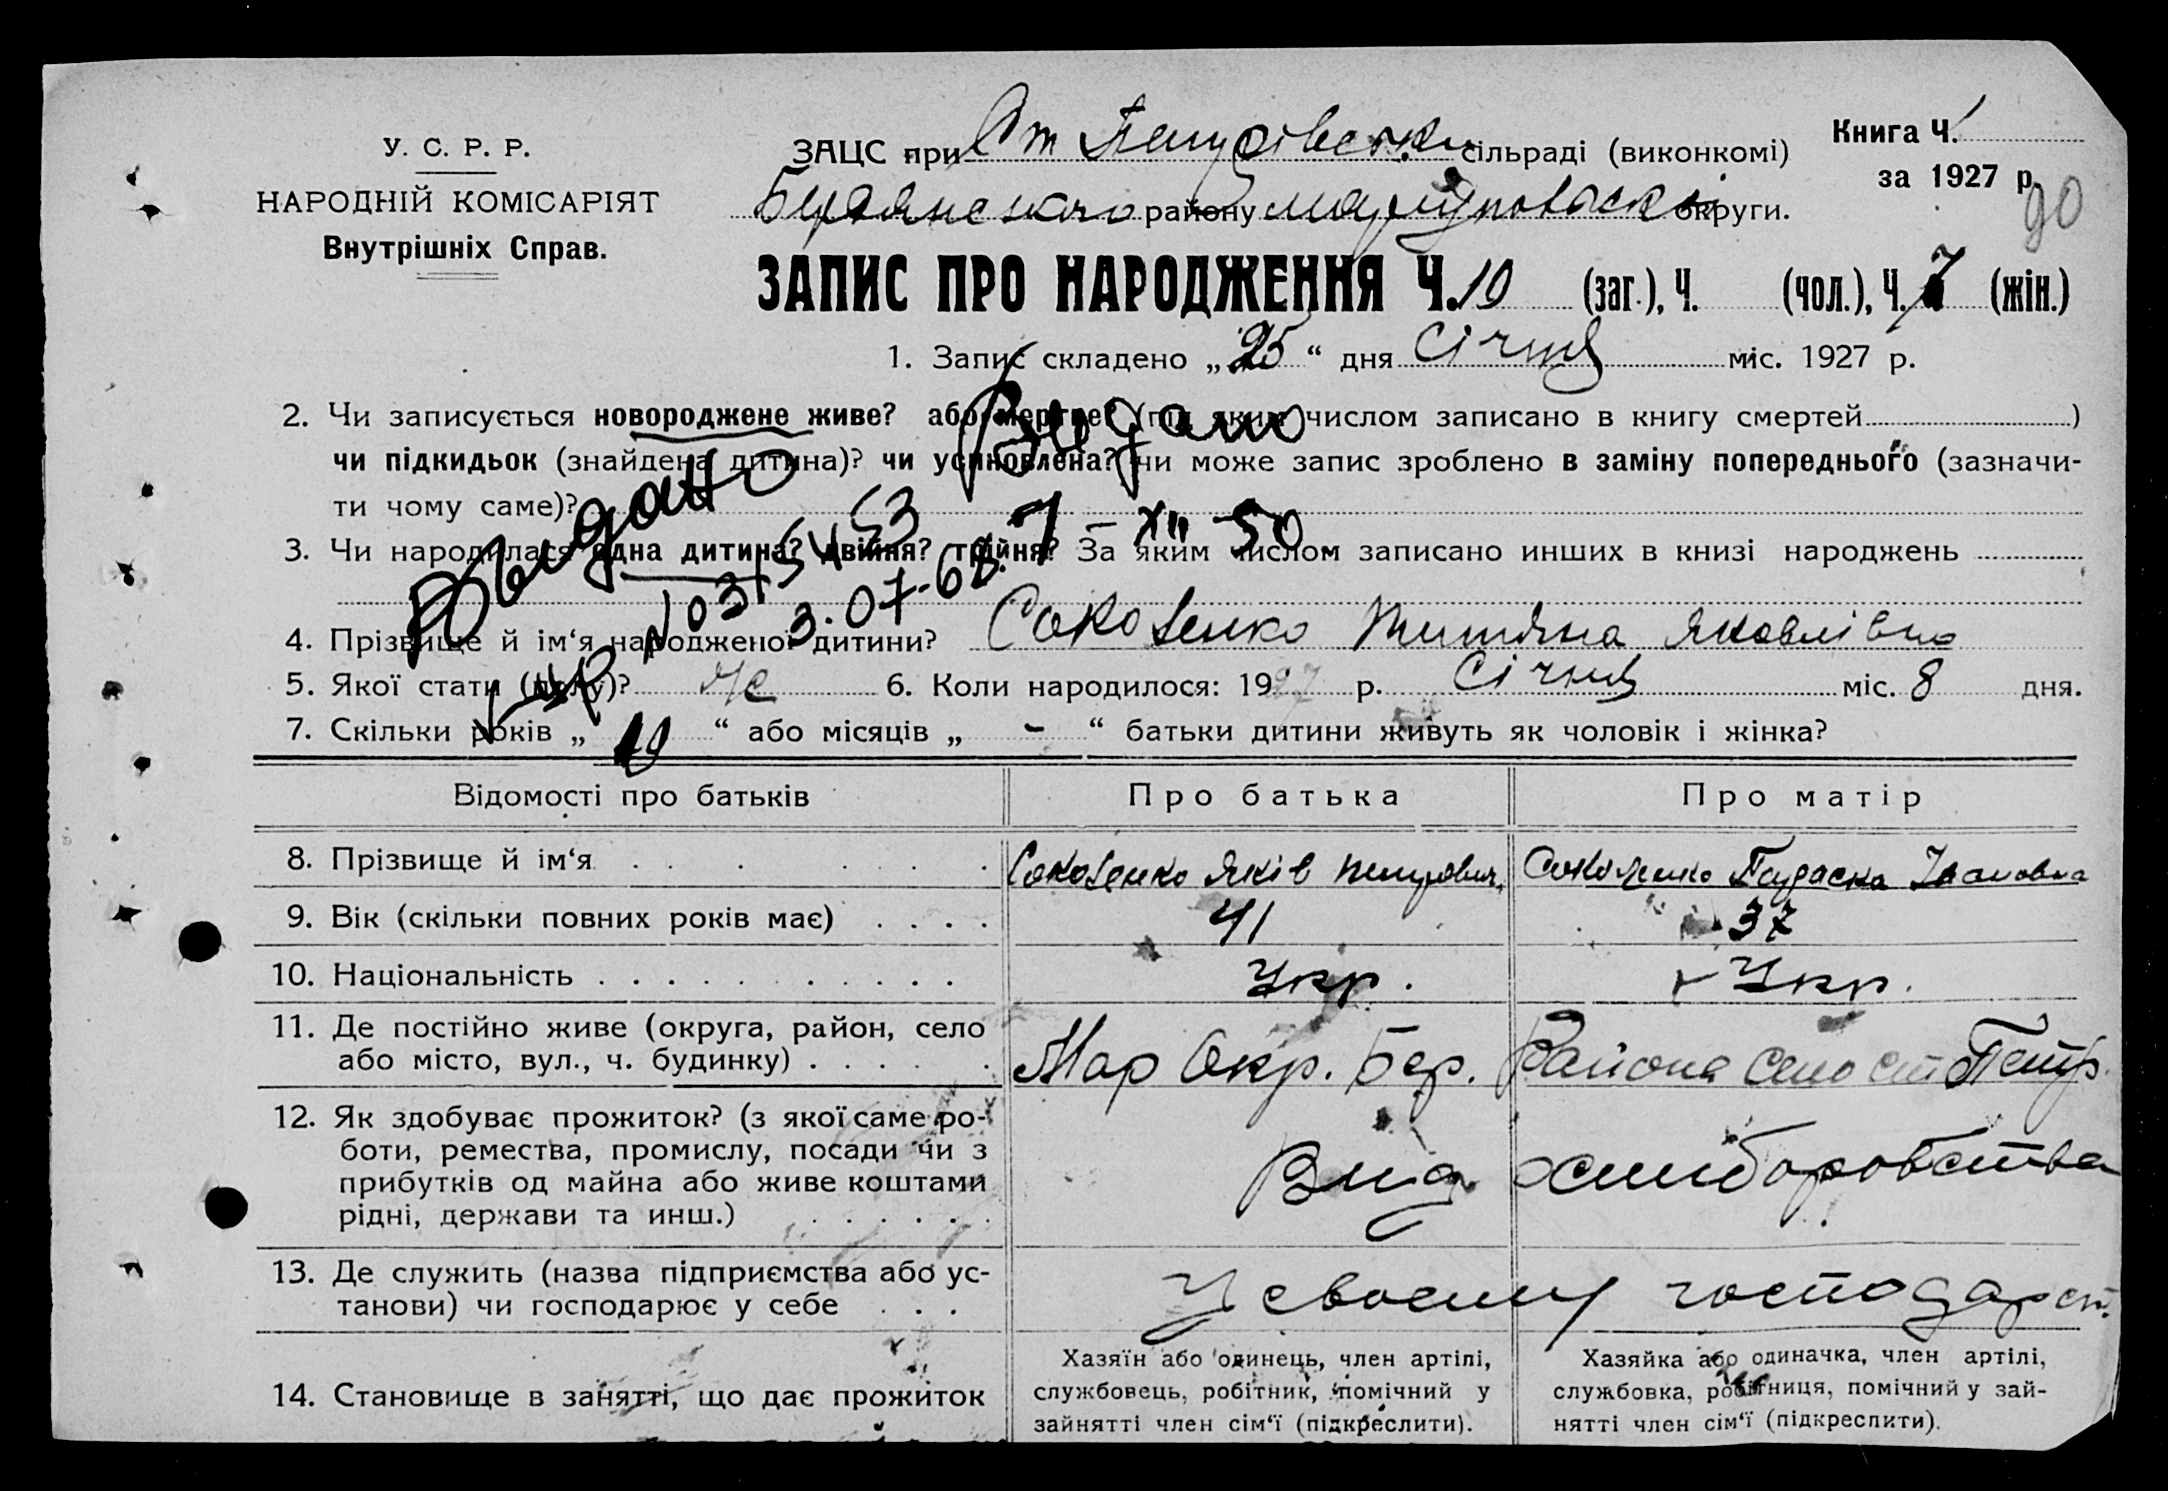 У. С. Р. Р.
НАРОДНІЙ КОМІСАРІЯТ
Внутрішніх Справ.
ЗАЦС при Ст Петровській сільраді (виконкомі)
Бердянського району Маріупольської округи.
Книга Ч. 1
за 1927 р.
90
ЗАПИС ПРО НАРОДЖЕННЯ Ч. 10 (заг.), Ч. (чол.), Ч. 7 (жін.)
1. Запис складено „ 25 “ дня Січня міс. 1927 р.
2. Чи записується новороджене живе? або мертве? (під яким числом записано в книгу смертей )
чи підкидьок (знайдена дитина)? чи усиновлена? чи може запис зроблено в заміну попереднього (зазначи-
ти чому саме)?
Видано
7 – XII 50
Выдано
3. Чи народилася одна дитина? двійня? трійня? За яким числом записано инших в книзі народжень
3.07.68.
4. Прізвище й ім‘я народженої дитини? Яковлівна
5. Якої стати (полу)? Ж 6. Коли народилося: 1927 р. Січня міс. 8 дня.
7. Скільки років „ “ або місяців „ - “ батьки дитини живуть як чоловік і жінка?
Відомості про батьків Про батька Про матір
8. Прізвище й ім‘я Яків Петрович Івановна
9. Вік (скільки повних років має) 41 37
10. Національність Укр. Укр.
11. Де постійно живе (округа, район, село
або місто, вул., ч. будинку) Мар Окр. Бер. Района село ст Петр.
12. Як здобуває прожиток? (з якої саме ро-
боти, ремества, промислу, посади чи з
прибутків од майна або живе коштами
рідні, держави та инш.) Вид хлиборобства
13. Де служить (назва підприємства або ус-
танови) чи господарює у себе У своему господарст.
14. Становище в занятті, що дає прожиток
Хазяїн або одинець, член артілі,
службовець, робітник, помічний у
зайнятті член сім‘ї (підкреслити).
Хазяйка або одиначка, член артілі,
службовка, робітниця, помічний у зай-
нятті член сім‘ї (підкреслити).